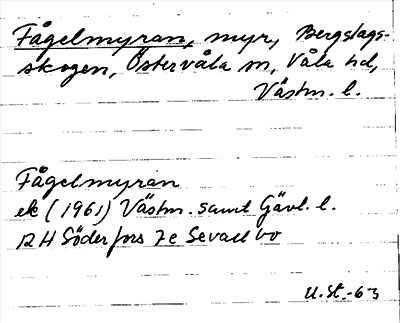 Fågelmyran, myr, Bergslags-
skogen, Östervåla sn, Våla hd,
Västm. l.
Fågelmyran
ek (1961) Västm. samt Gävl. l.
12 H Söderfors 7e Sevall vv
U.St.-63